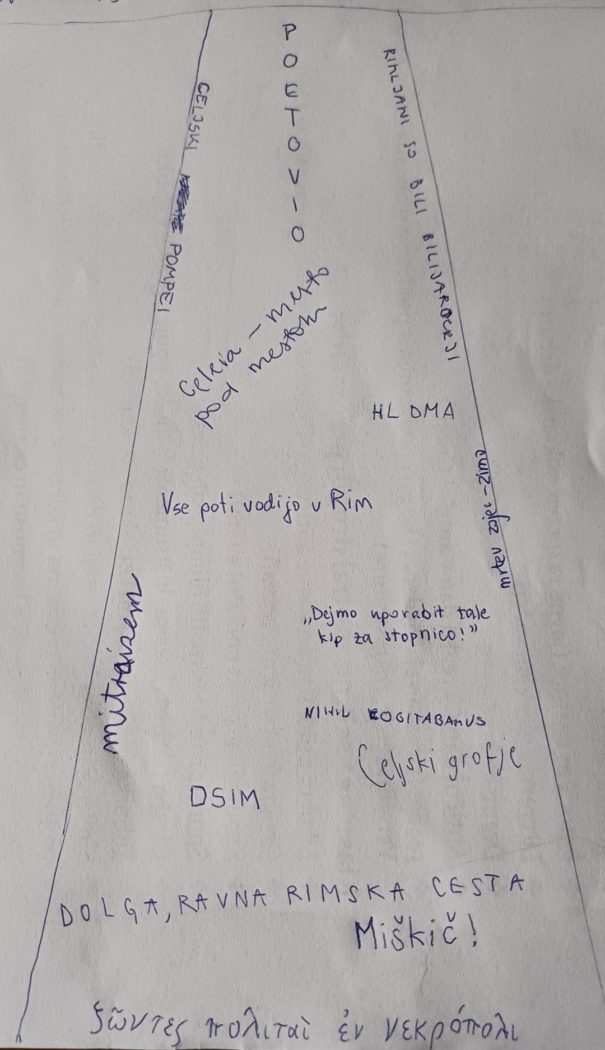 POETOVIO
CELJSKI POMPEI
RIMLJANI SO BILI BILIJARDERJI
Celeia – mesto
pod mestom
HL DMA
Vse poti vodijo v Rim
mrtev zajec – zima
„Dejmo uporabit tale
kip za stopnico!”
mitraizem
NIHIL COGITABAMUS
Celjski grofje
DSIM
DOLGA, RAVNA RIMSKA CESTA
Miškič!
ζῶντες πολιταὶ ἐν νεκρόπολι